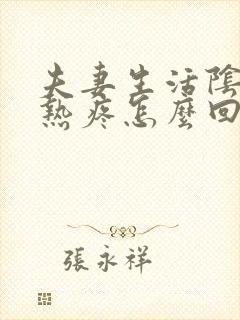 夫妻生活陰
熱疼怎麼回
張永祥